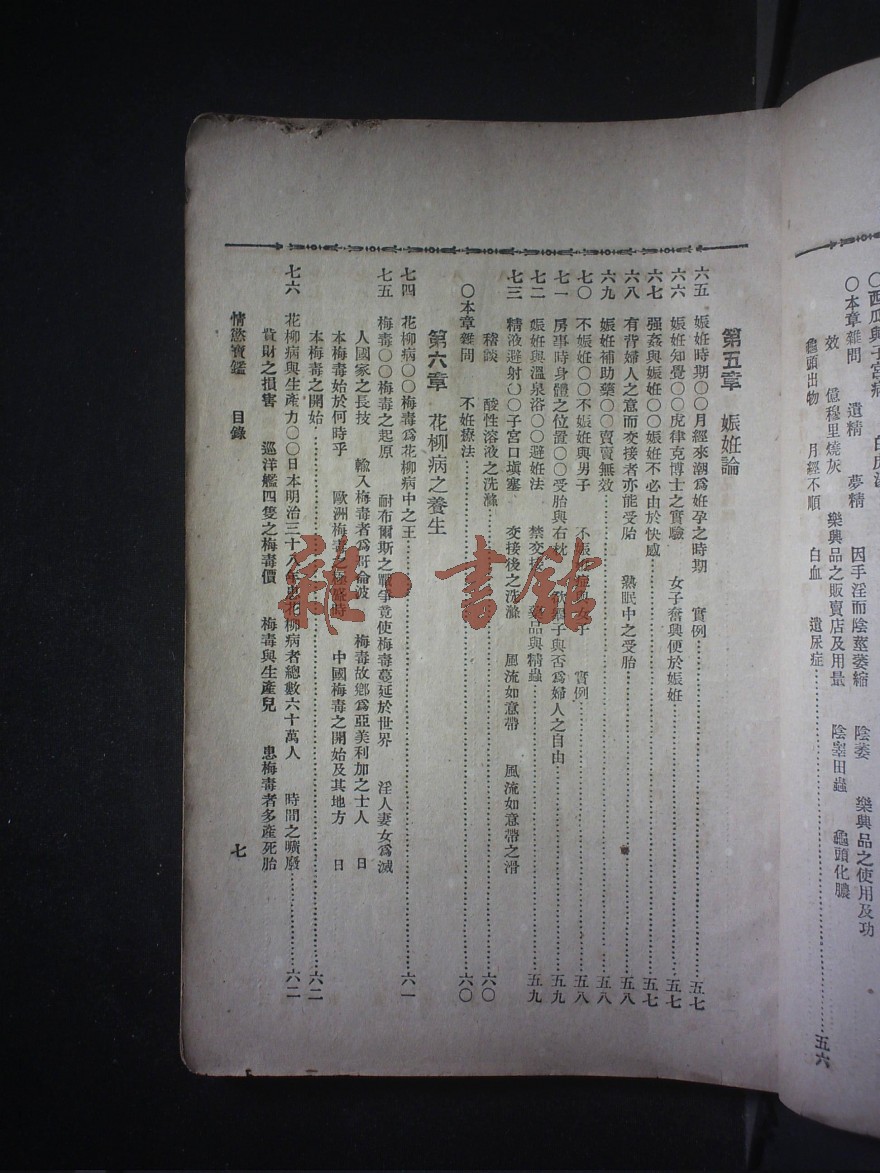 〇西瓜與子宮病
〇本章雜問 遺精 夢精 因手淫而陰莖萎縮 陰萎 樂興品之使用及功
效 億穆里燒灰 樂興品之販賣店及用量 陰睾田蟲 龜頭化膿
龜頭出物 月經不順 白血 遺尿症……五六
第五章 娠姙論
六五 娠姙時期〇〇月經來潮爲姙孕之時期 實例……五七
六六 娠姙知覺〇〇虎律克博士之實驗 女子奮興便於娠姙……五七
六七 强姦與娠姙〇〇娠姙不必由於快感……五七
六八 有背婦人之意而交接者亦能受胎 熟眠中之受胎……五八
六九 娠姙補助藥〇〇賣賣無效……五八
七〇 不娠姙〇〇不娠姙與男子 不娠姙症與女子 實例……五八
七一 房事時身體之位置〇〇受胎與右枕 欲舉子與否爲婦人之自由……五九
七二 娠姙與溫泉浴〇〇避姙法 禁交接 藥品與精蟲……五九
七三 精液避射〇〇子宮口塡塞 交接後之洗滌 風流如意帶 風流如意帶之滑
稽談 酸性溶液之洗滌……六〇
〇本章雜問 不姙療法……六〇
第六章 花柳病之養生
七四 花柳病〇〇梅毒爲花柳病中之王……六一
七五 梅毒〇〇梅毒之起原 耐布爾斯之戰爭竟使梅毒蔓延於世界 淫人妻女爲滅
人國家之長技 輸入梅毒者爲哥倫波 梅毒故鄉爲亞美利加之士人 日
本梅毒始於何時乎 歐洲梅毒之極盛時 中國梅毒之開始及其地方 日
本梅毒之開始……六二
七六 花柳病與生產力〇〇日本明治三十八年患花柳病者總數六十萬人 時間之曠廢……六二
貲財之損害 巡洋艦四隻之梅毒價 梅毒與生產兒 患梅毒者多產死胎
情慾寶鑑 目錄 七
書館